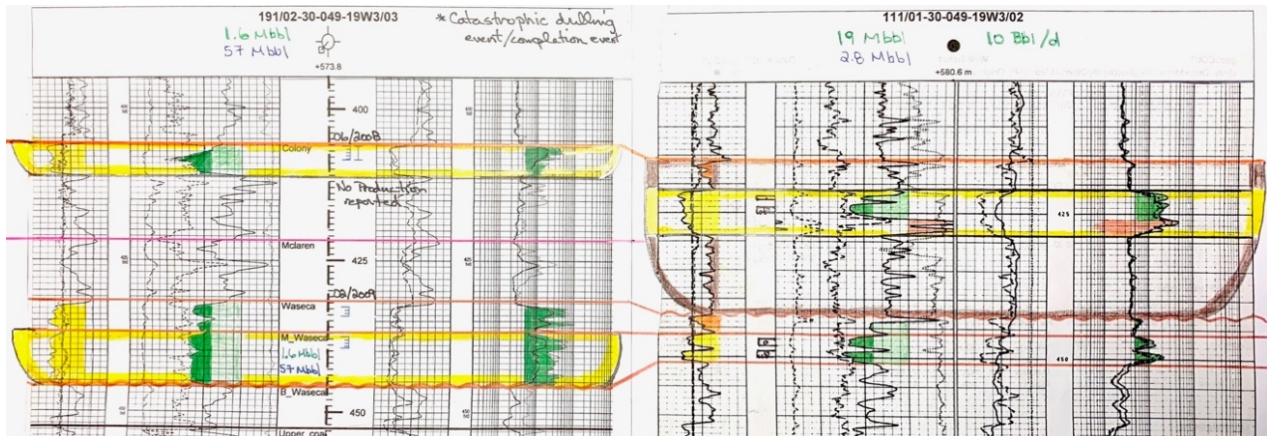 191/02-30-049-19W3/03
* Catastrophic drilling
event/completion event
1.6 Mbbl
57 Mbbl
+573.8
400
06/2008
Colony
No Production
reported
Mclaren
425
02/2009
Waseca
M_Waseca
1.6 Mbbl
57 Mbbl
B_Waseca
450
Upper_coal
111/01-30-049-19W3/02
19 Mbbl
10 Bbl/d
2.8 Mbbl
+580.6 m
425
450